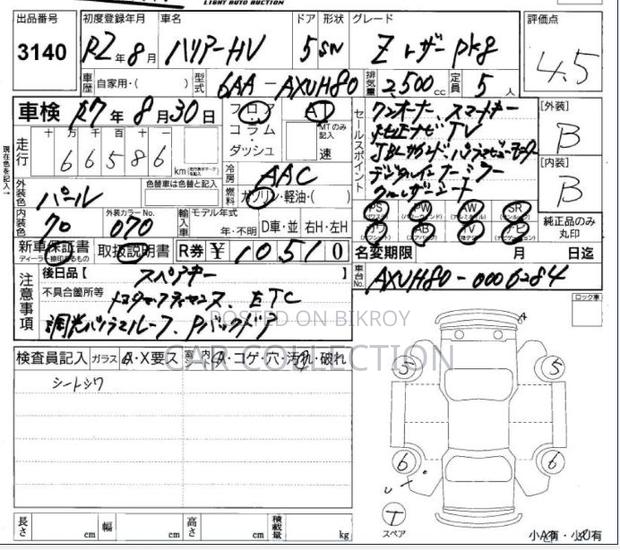 LIGHT AUTO AUCTION
出品番号 初度登録年月 車名 ドア 形状 グレード 評価点
3140 R2年8月 ハリアーHV 5 SN Z レザーpkg 4.5
車歴 自家用・( ) 型式 6AA-AXUH80 排気量 2,500cc 定員 5人
車検 R7年8月30日 フロア AT セールスポイント ワンオーナー、スマートキー [外装]
走行 十万千百十一 コラム MTのみ記入 純正ナビTV B
66586 km ダッシュ 速
JBLサウンド、パノラマビューモニター [内装]
外装色 パール 色替車は色替と記入 冷房 AAC デジタルインナーミラー B
燃料 ガソリン・軽油・( ) クルーズシート
内装色 70 外装カラーNo. 070 輸入車 モデル年式 年・不明 D車・並 右H・左H PS PW AW SR 純正品のみ丸印
AB TV
新車保証書 ディーラー捺印あるもの 取扱説明書 R券 ¥10510 名変期限 月 日迄
注意事項 後日品[ スペアキー 車台No. AXUH80-0006284
不具合箇所等 トヨタマークティセンス、ETC ロック車
調光パノラマルーフ、Pバックドア
POSTED ON BIKROY
CAR COLLECTION
検査員記入 ガラス A・X要ス 内 A・コゲ・穴・汚れ・破れ
シートシワ
A
5 5
6 6
T
スペア
長さ cm 幅 cm 高さ cm 積載量 kg 小A有・小U有
現在色を記入